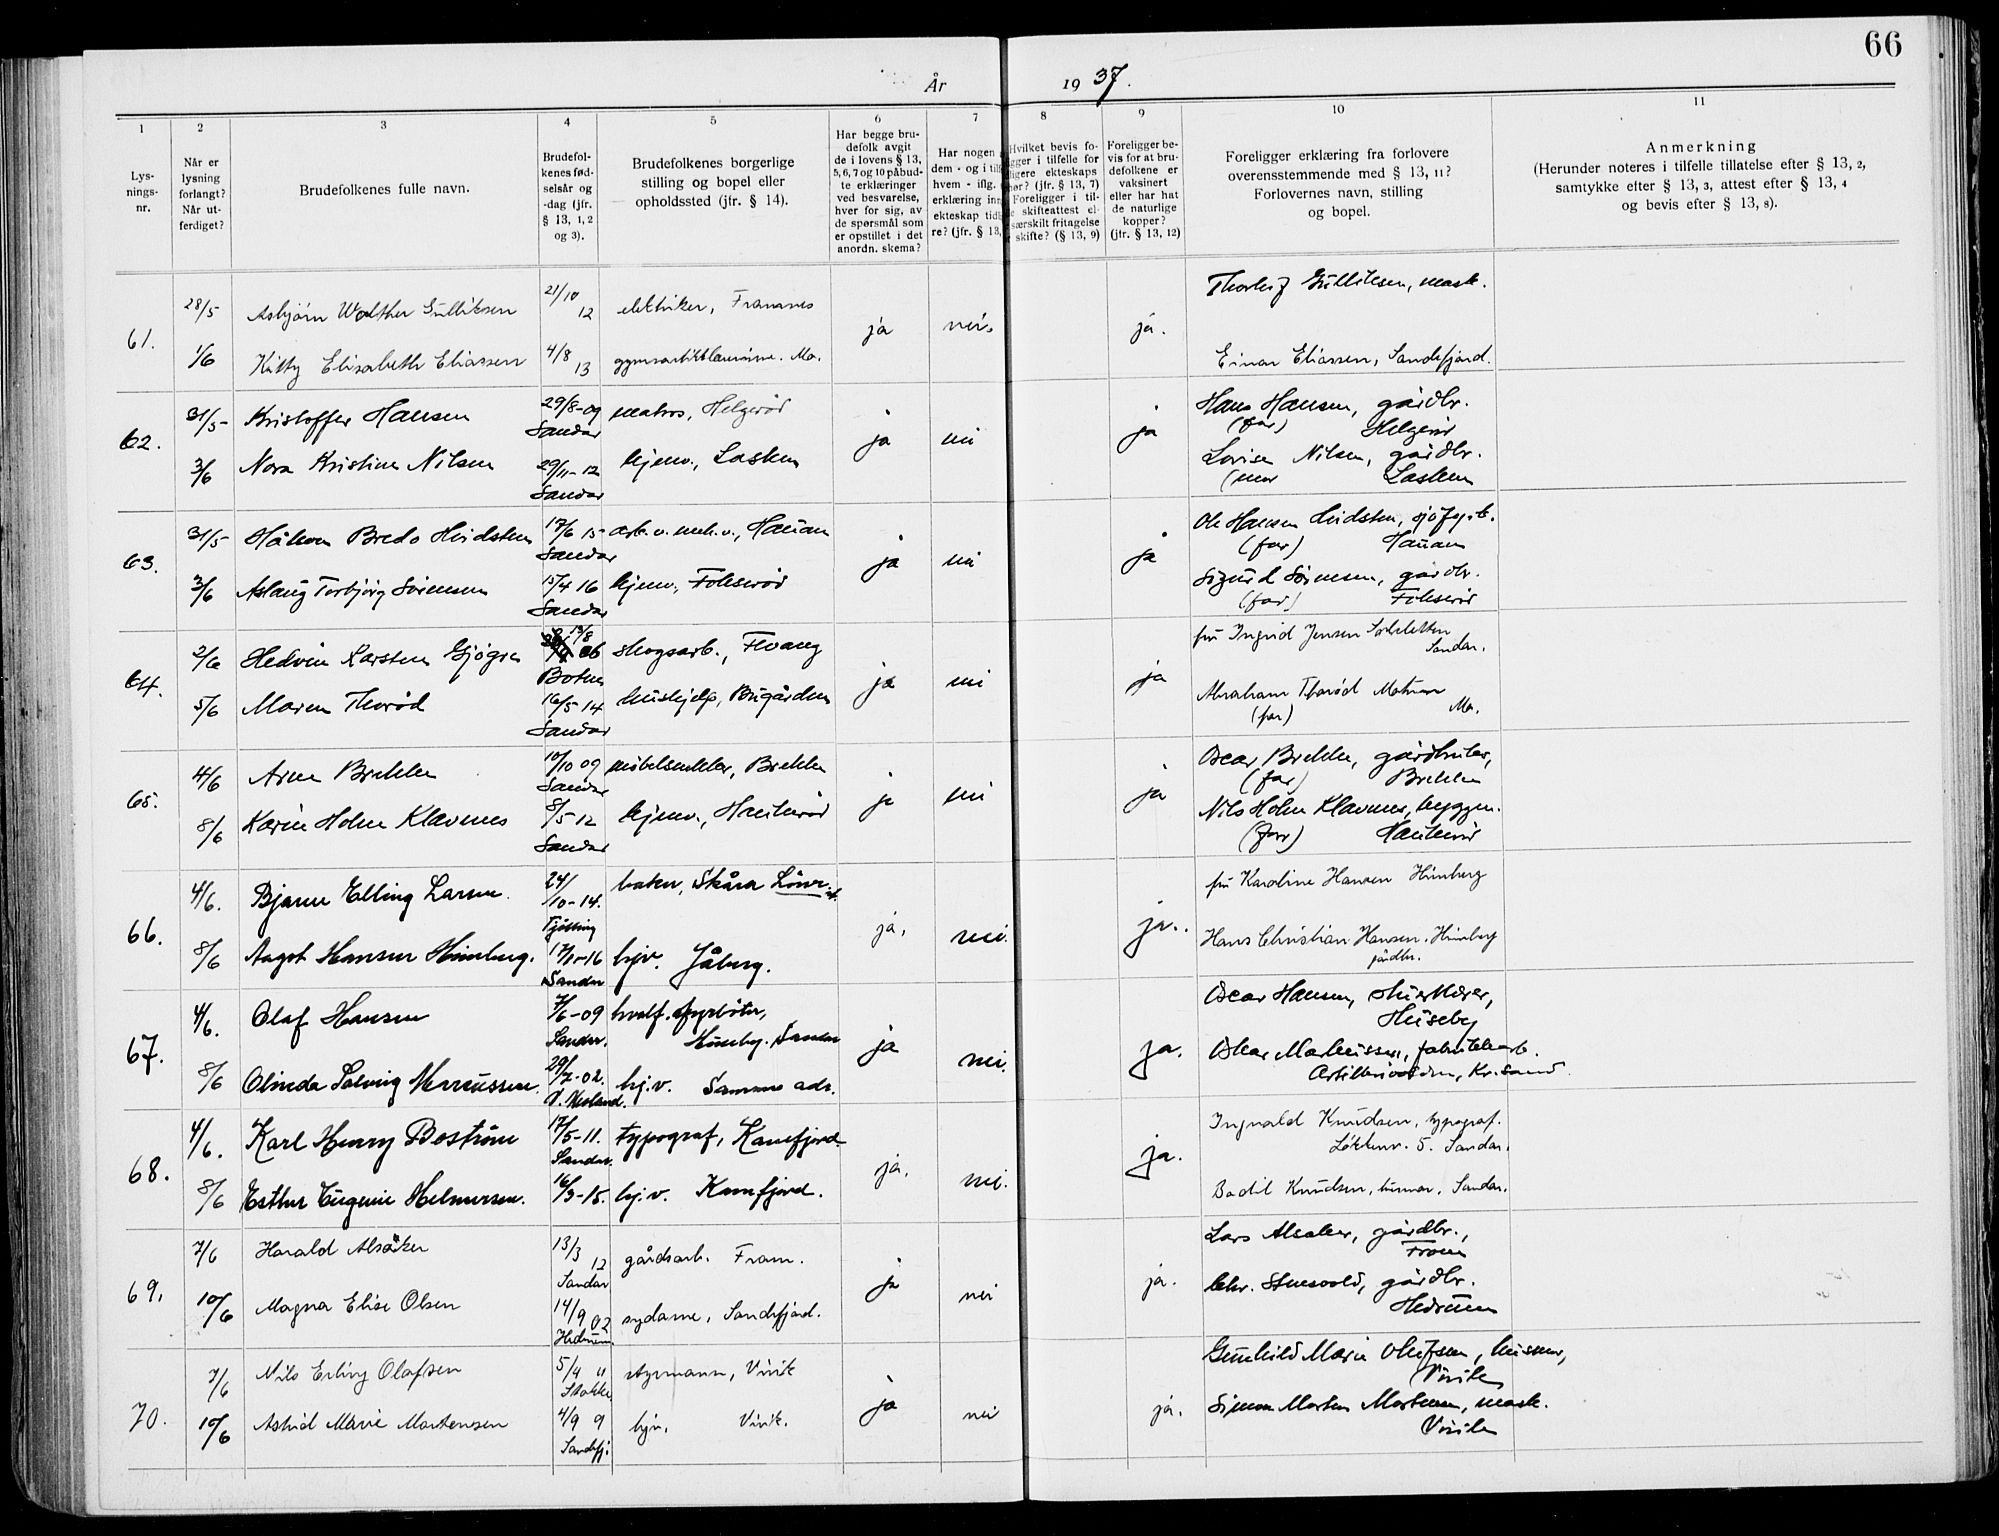 66
År 1937.
1 2 3 4 5 6 7 8 9 10 11
Lys-
nings-
nr.
Når er
lysning
forlangt?
Når ut-
ferdiget?
Brudefolkenes fulle navn.
Brudefol-
kenes fød-
selsår og
-dag (jfr.
§ 13, 1, 2
og 3).
Brudefolkenes borgerlige
stilling og bopel eller
opholdssted (jfr. § 14).
Har begge bru-
defolk avgit
de i lovens § 13,
5, 6, 7 og 10 påbud-
te erklæringer
ved besvarelse,
hver for sig, av
de spørsmål som
er opstillet i det
anordn. skema?
Har nogen
dem - og i til
hvem - iflg.
erklæring inn
ekteskap tid
re? (jfr. § 13,
Hvilket bevis fo-
gger i tilfelle for
ligere ekteskaps
hør? (jfr. § 13, 7)
Foreligger i til-
e skifteattest el-
særskilt fritagelse
skifte? (§ 13, 9)
Foreligger be-
vis for at bru-
defolkene er
vaksinert
eller har hat
de naturlige
kopper?
(jfr. § 13, 12)
Foreligger erklæring fra forlovere
overensstemmende med § 13, 11?
Forlovernes navn, stilling
og bopel.
Anmerkning
(Herunder noteres i tilfelle tillatelse efter § 13, 2,
samtykke efter § 13, 3, attest efter § 13, 4
og bevis efter § 13, 8).
61. 28/5 Asbjørn Walther Gulliksen 21/10 12 elektriker, Framnes ja nei. ja. Thorleif Gulliksen, mask.
1/6 Kitty Elisabeth Eliassen 4/8 13 Einar Eliassen, Sandefjord.
62. 31/5 Kristoffer Hansen 29/8-09 Sandar matros, Helgerød ja nei ja Hans Hansen, gårdbr.
(far) Helgerød
3/6 Nora Kristine Nilsen 29/11-12 Sandar hjemv., Lasken Lovise Nilsen, gårdbr.
(mor Lasken
63. 31/5 Håkon Bredo Hvidsten 17/6 15 Sandar Hauan ja nei ja Ole Hansen Hvidsten,
(far) Hauan
3/6 Aslaug Torbjørg Sørensen 15/4 16 Sandar hjemv., Fokserød Sigurd Sørensen, gårdbr.
(far) Fokserød
64. 2/6 Hedvin Karsten Gjøgri 19/8 06 Botne skogsarb., Flvang ja nei ja fru Ingrid Jensen
Sandar.
5/6 Maren Thorød 16/5 14 Sandar hushjelp, Bugården Abraham Thorød
(far)
65. 4/6 Arne Brekke 10/10 09 Sandar møbelsnekker, Brekke ja nei ja Oscar Brekke, gårdbruker,
(far) Brekke
8/6 Karin Holm Klavenes 8/5 12 Sandar hjemv., Haukerød Nils Holm Klavenes, byggm.
(far) Haukerød
66. 4/6. Bjarne Elling Larsen. 24/10-14. Tjølling baker, Skåra ja. nei. ja. fru Karoline Hansen Himberg
8/6 Aagot Hansen Himberg. 17/1-16 Sandar hjv. Jåberg. Hans Christian Hansen, Himberg
gårdbr.
67. 4/6. Olaf Hansen 7/6-09 Sandar. hvalf. fyrbøter,
Huseby. Sandar ja nei. ja. Oscar Hansen,
Huseby
8/6 Olinda Solveig Marcussen. 29/7-02. hj.v. Samme adr. Oskar Markussen, fabrikkarb.
Kr.sand.
68. 4/6. Karl Henry Bostrøm 17/5-11. Sandar. typograf, Kamfjord. ja. nei. ja. Ingvald Knudsen, typograf.
Løkkenv. 5. Sandar.
8/6 Esther Eugenie Helmersen. 16/3-15. hj.v. Kamfjord. Bodil Knudsen, husmor, Sandar.
69. 7/6 Harald Alsåker 13/3 12 Sandar gårdsarb. Fram. ja nei ja. Lars Alsaker, gårdbr.,
Fram
10/6 Magna Elise Olsen 14/9 02 Hedrum sydame, Sandefjord. Chr. gårdbr.
Hedrum
70. 7/6 Nils Erling Olafsen 5/4 11 Stokke styrmann, Virik ja nei ja. Gunhild Marie Olafsen, husmor,
Virik
10/6 Astrid Marie Mortensen 4/9 9 Sandefj. hjv. Virik. Simon Morten Mortensen, mask.
Virik